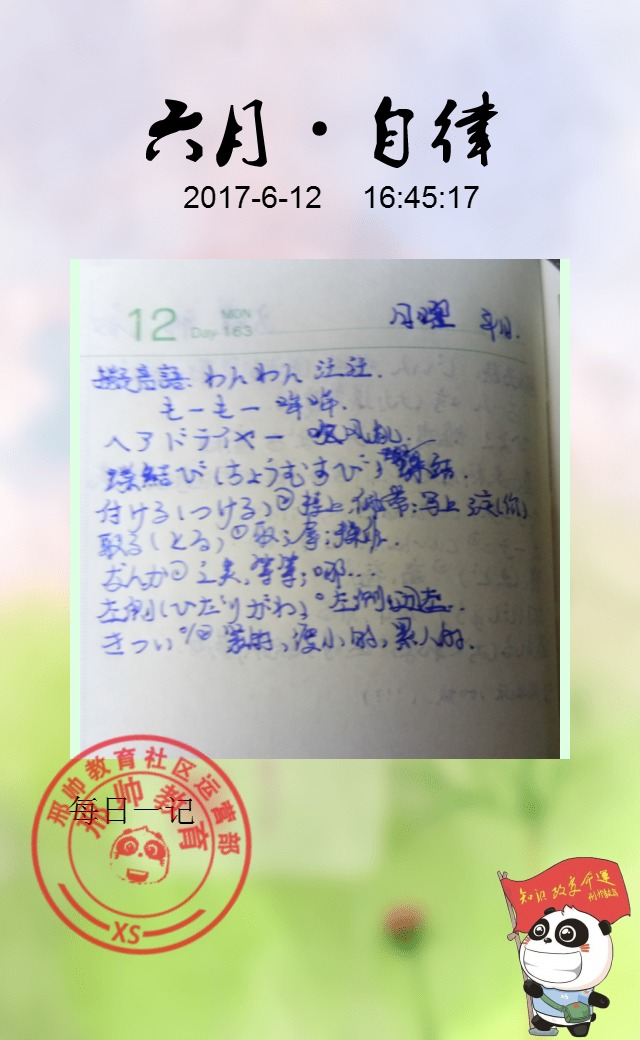 六月·自律
2017-6-12 16:45:17
12 MON
Day 163
月曜
擬音語: わんわん 汪汪.
もーもー 哞哞.
ヘアドライヤー 吹风机.
蝶結び(ちょうむすび)
付ける(つける)② 接上,佩带;写上
取る(とる)① 取;拿;
なんか① 之类,等等;哪…
左側(ひだりがわ)⓪ 左侧,
きつい⓪/② 累人的.
邢帅教育社区运营部
邢帅教育
每日一记
XS
知识改变命运